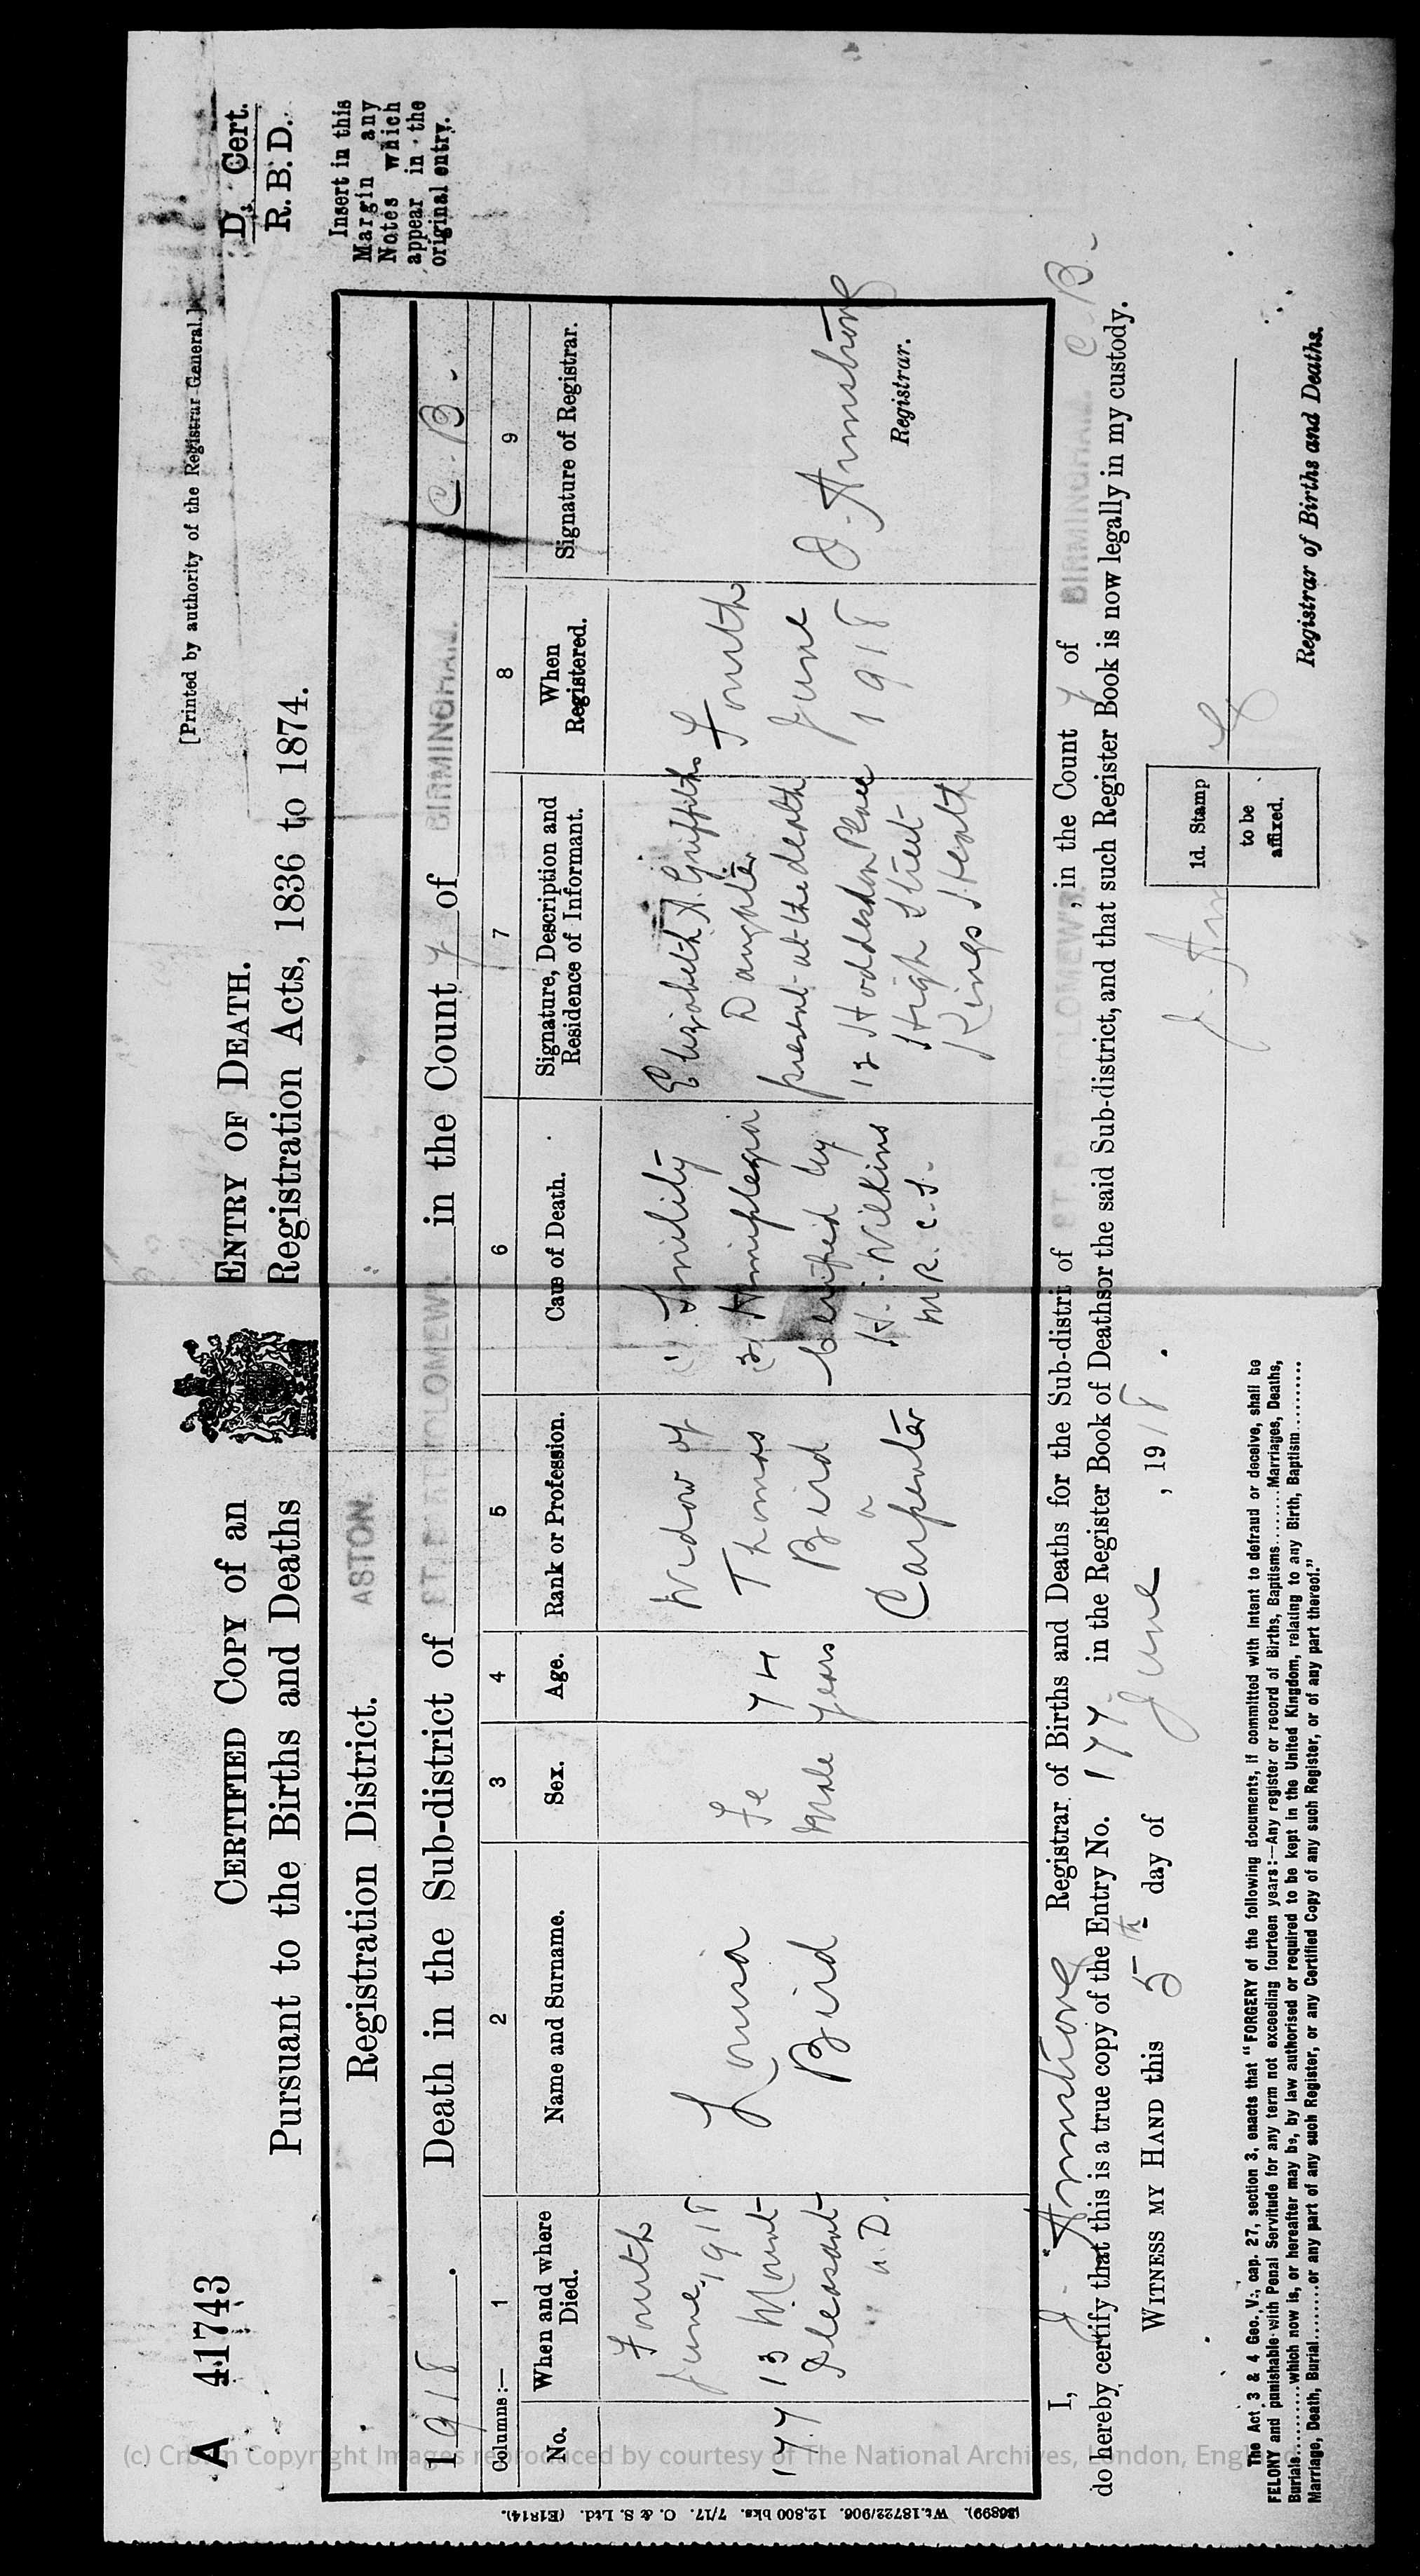 A 41743
CERTIFIED COPY of an ENTRY OF DEATH.
[Printed by authority of the Registrar-General.]
D. Cert.
R. B. D.
Pursuant to the Births and Deaths Registration Acts, 1836 to 1874.
Insert in this
Margin any
Notes which
appear in the
original entry.
Registration District. ASTON.
1918. Death in the Sub-district of ST. BARTHOLOMEW. in the County of BIRMINGHAM. C. B.
Columns:— 1 2 3 4 5 6 7 8 9
No.
When and where
Died.
Name and Surname.
Sex.
Age.
Rank or Profession.
Caus of Death.
Signature, Description and
Residence of Informant.
When
Registered.
Signature of Registrar.
177
Fourth
June 1918
13 Mount
Pleasant
u. D.
Louisa
Bird
Fe
male
74
years
Widow of
Thomas
Bird
a
Carpenter
(1) Senility
(2) Hemiplegia
Certified by
H. Wilkins
M R. C. S.
Elizabeth A. Griffiths
Daughter
present at the death
12 Hoddesdon Place
High Street
Kings Heath
Fourth
June
1918
J. Armstrong
Registrar.
I, J. Armstrong Registrar of Births and Deaths for the Sub-distri t of ST. BARTHOLOMEW'S. , in the County of BIRMINGHAM. C. B.
do hereby certify that this is a true copy of the Entry No. 177 in the Register Book of Deathsor the said Sub-district, and that such Register Book is now legally in my custody.
WITNESS MY HAND this 5th day of June , 1918.
1d. Stamp
to be
affixed.
Registrar of Births and Deaths.
The Act 3 & 4 Geo. V., cap. 27, section 3, enacts that "FORGERY of the following documents, if committed with intent to defraud or deceive, shall be
FELONY and punishable with Penal Servitude for any term not exceeding fourteen years:—Any register or record of Births, Baptisms.......Marriages, Deaths,
Burials..........which now is, or hereafter may be, by law authorised or required to be kept in the United Kingdom, relating to any Birth, Baptism..........
Marriage, Death, Burial........or any part of any such Register, or any Certified Copy of any such Register, or of any part thereof."
(36899). Wt.18722/906. 12,800 bks. 7/17. C. & S. Ltd. (E1814).
(c) Crown Copyright Images reproduced by courtesy of The National Archives, London, England.